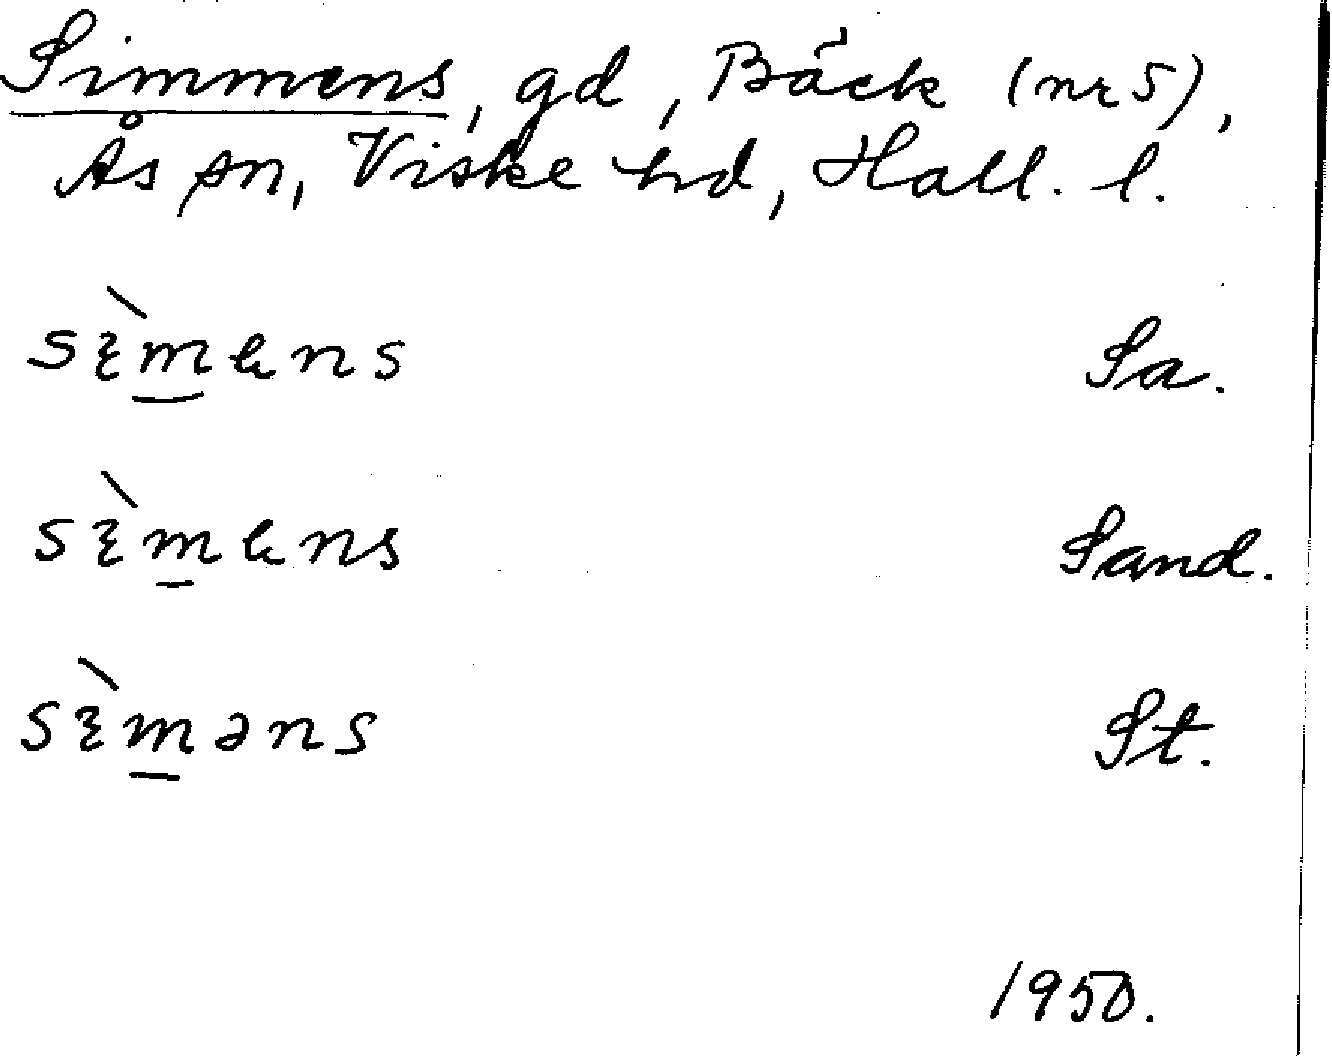 Simmens, gd, Bäck (nr 5),
Ås sn, Viske hd, Hall. l.
sèmens Sa.
sèmens Sand.
sèməns St.
1950.